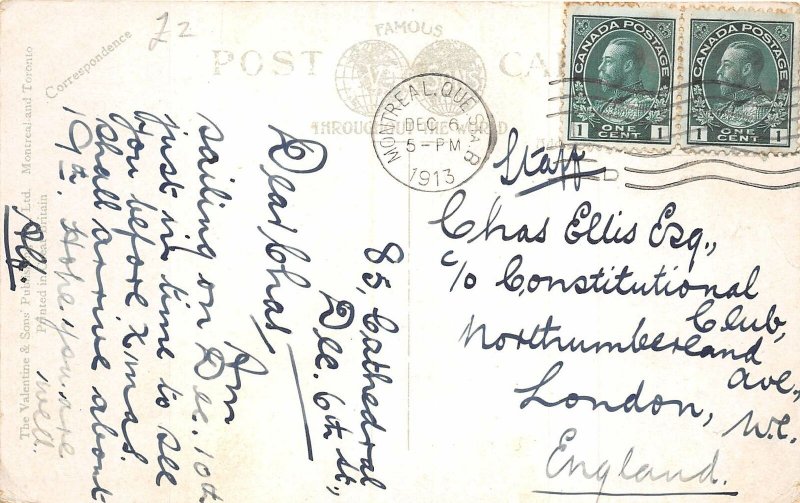 £2
FAMOUS
POST CA
THROUGHOUT THE WORLD
Correspondence
The Valentine & Sons Publ Ltd. Montreal and Toronto
Printed in Great Britain
CANADA POSTAGE
1 ONE CENT 1
CANADA POSTAGE
1 ONE CENT 1
MONTREAL, QUE.
DEC 6
5-PM
1913
Staff
Chas Ellis Esq.,
c/o Constitutional
Club,
Northumberland
Ave,
London, W.C.
England.
85, Cathedral St.,
Dec. 6th
Dear Chas,
Am
sailing on Dec. 10th
just in time to see
you before X'mas.
Shall arrive about
19th. Hope you are
well.
Alf.